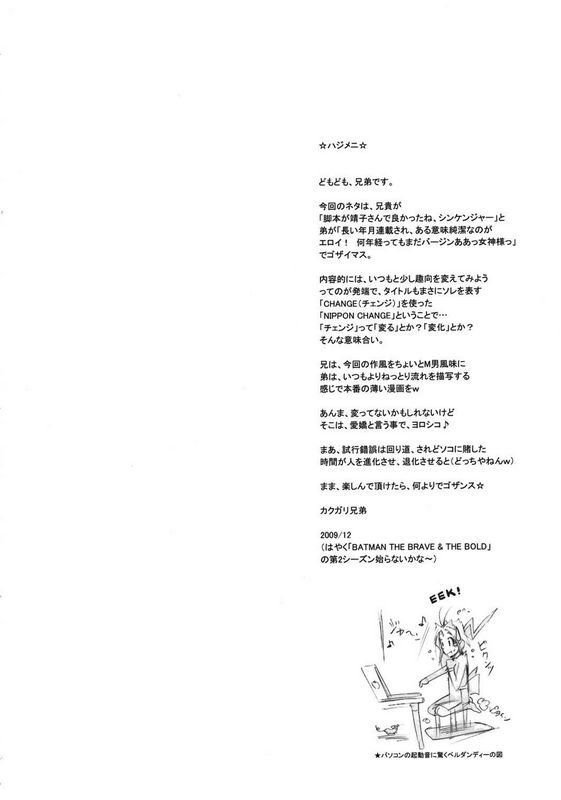 ☆ハジメニ☆
どもども、兄弟です。
今回のネタは、兄貴が
「脚本が靖子さんで良かったね、シンケンジャー」と
弟が「長い年月連載され、ある意味純潔なのが
エロイ！　何年経ってもまだバージンああっ女神様っ」
でゴザイマス。
内容的には、いつもと少し趣向を変えてみよう
ってのが発端で、タイトルもまさにソレを表す
「CHANGE（チェンジ）」を使った
「NIPPON CHANGE」ということで…
「チェンジ」って「変る」とか？「変化」とか？
そんな意味合い。
兄は、今回の作風をちょいとM男風味に
弟は、いつもよりねっとり流れを描写する
感じで本番の薄い漫画をｗ
あんま、変ってないかもしれないけど
そこは、愛嬌と言う事で、ヨロシコ♪
まあ、試行錯誤は回り道、されどソコに賭した
時間が人を進化させ、退化させると（どっちやねんｗ）
まま、楽しんで頂けたら、何よりでゴザンス☆
カクガリ兄弟
2009/12
（はやく「BATMAN THE BRAVE & THE BOLD」
の第2シーズン始らないかな～）
EEK!
ジャーン
ビクンッ
★パソコンの起動音に驚くベルダンディーの図